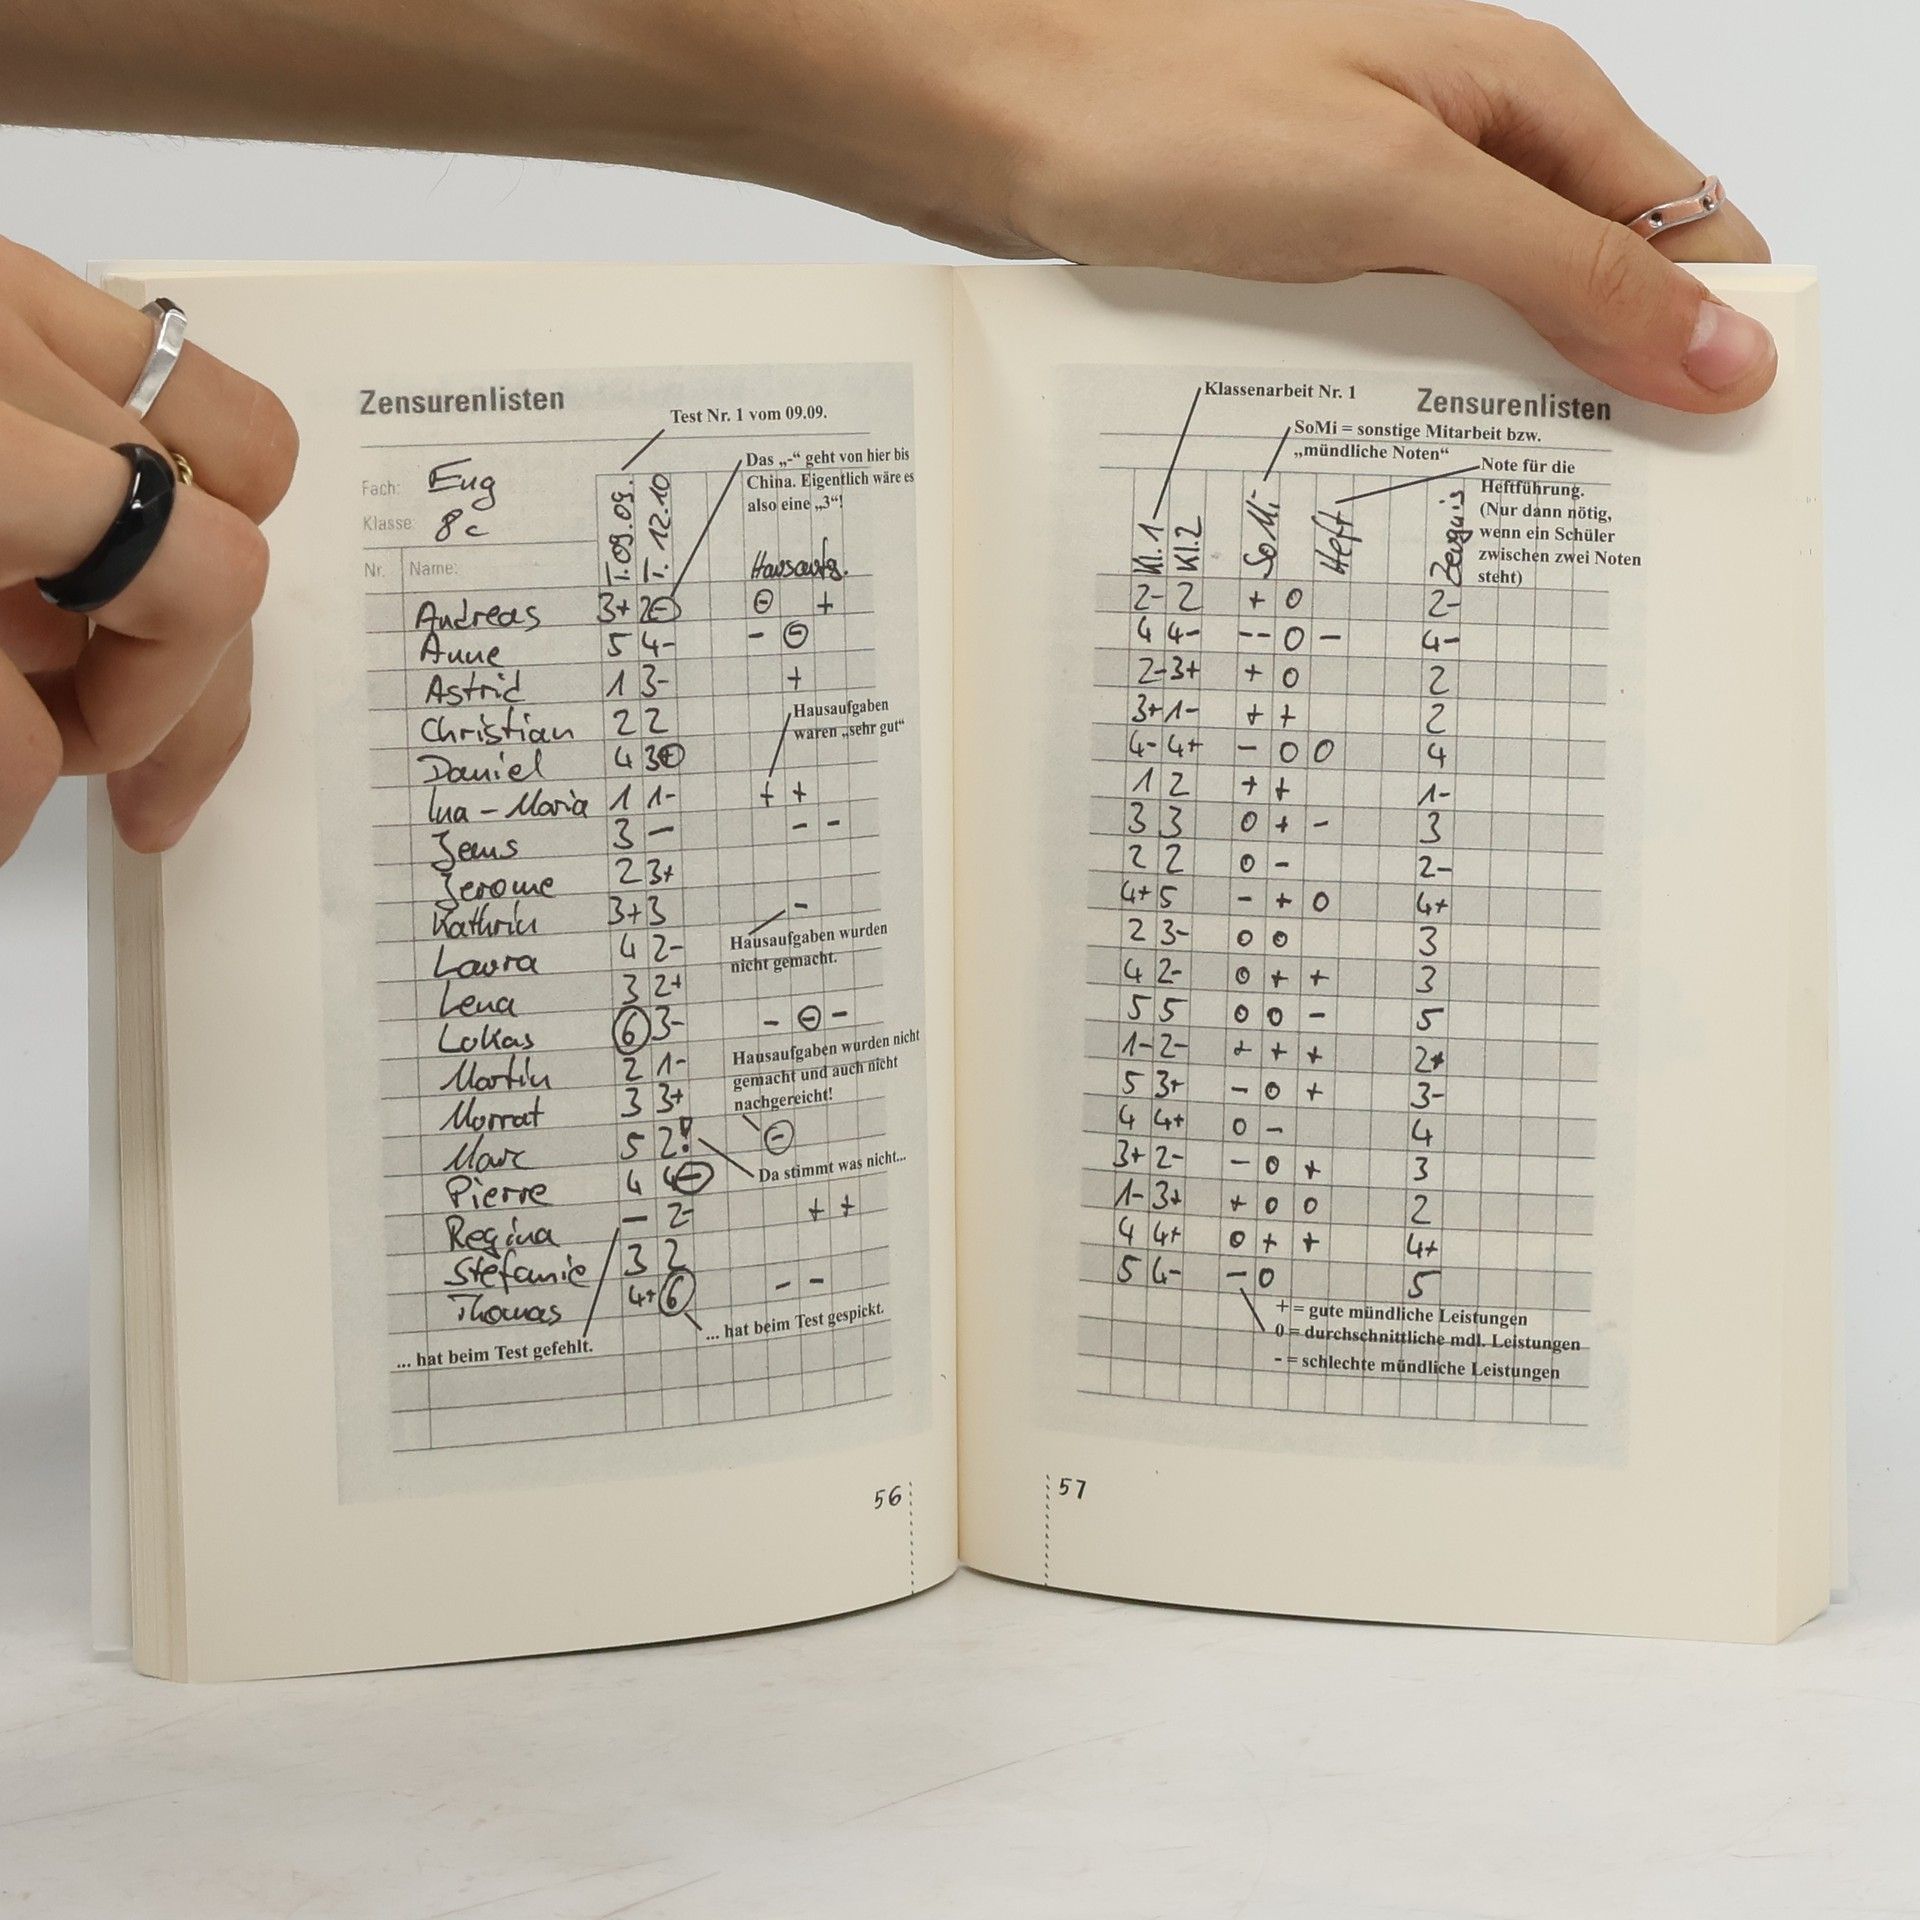 Zensurenlisten
Test Nr. 1 vom 09.09.
Das „-“ geht von hier bis
China. Eigentlich wäre es
also eine „3“!
Fach: Eng
Klasse: 8c
Nr. Name: T. 09.09. T. 12.10 Hausaufg.
Andreas 3+ 2⊖ ⊖ +
Anne 5 4- - ⊖
Astrid 1 3- +
Christian 2 2
Hausaufgaben
waren „sehr gut“
Daniel 4 3⊕
Ina-Maria 1 1- + +
Jens 3 – - -
Jerome 2 3+
Kathrin 3+ 3 -
Hausaufgaben wurden
nicht gemacht.
Laura 4 2-
Lena 3 2+
Lukas 6 3- - ⊖ -
Hausaufgaben wurden nicht
gemacht und auch nicht
nachgereicht!
Martin 2 1-
Morrat 3 3+
Marc 5 2! ⊖
Da stimmt was nicht...
Pierre 4 4⊖
Regina – 2- + +
Stefanie 3 2
Thomas 4+ 6 - -
... hat beim Test gespickt.
... hat beim Test gefehlt.
56
Klassenarbeit Nr. 1
Zensurenlisten
SoMi = sonstige Mitarbeit bzw.
„mündliche Noten“
Note für die
Heftführung.
(Nur dann nötig,
wenn ein Schüler
zwischen zwei Noten
steht)
Kl. 1 Kl. 2 SoMi Heft Zeugnis
2- 2 + 0 2-
4 4- -- 0 - 4-
2- 3+ + 0 2
3+ 1- + + 2
4- 4+ - 0 0 4
1 2 + + 1-
3 3 0 + - 3
2 2 0 - 2-
4+ 5 - + 0 4+
2 3- 0 0 3
4 2- 0 + + 3
5 5 0 0 - 5
1- 2- + + + 2+
5 3+ - 0 + 3-
4 4+ 0 - 4
3+ 2- - 0 + 3
1- 3+ + 0 0 2
4 4+ 0 + + 4+
5 4- - 0 5
+ = gute mündliche Leistungen
0 = durchschnittliche mdl. Leistungen
- = schlechte mündliche Leistungen
57